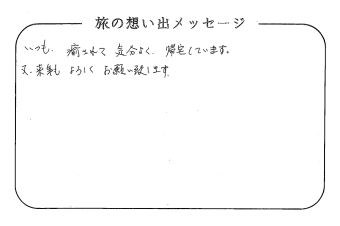 旅の想い出メッセージ
いつも、癒されて 気分よく 帰宅しています。
又、来年も よろしく お願い致します